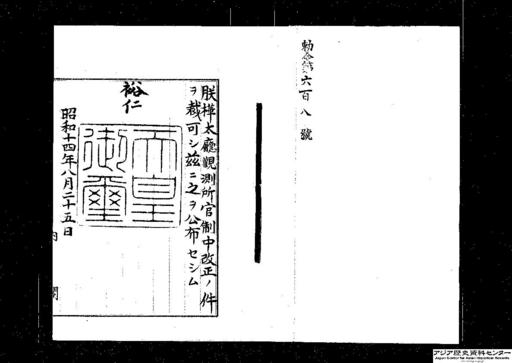 勅令第六百八號
朕樺太廳觀測所官制中改正ノ件
ヲ裁可シ茲ニ之ヲ公布セシム
裕仁
天皇
御璽
昭和十四年八月二十五日
内閣
アジア歴史資料センター
Japan Center for Asian Historical Records